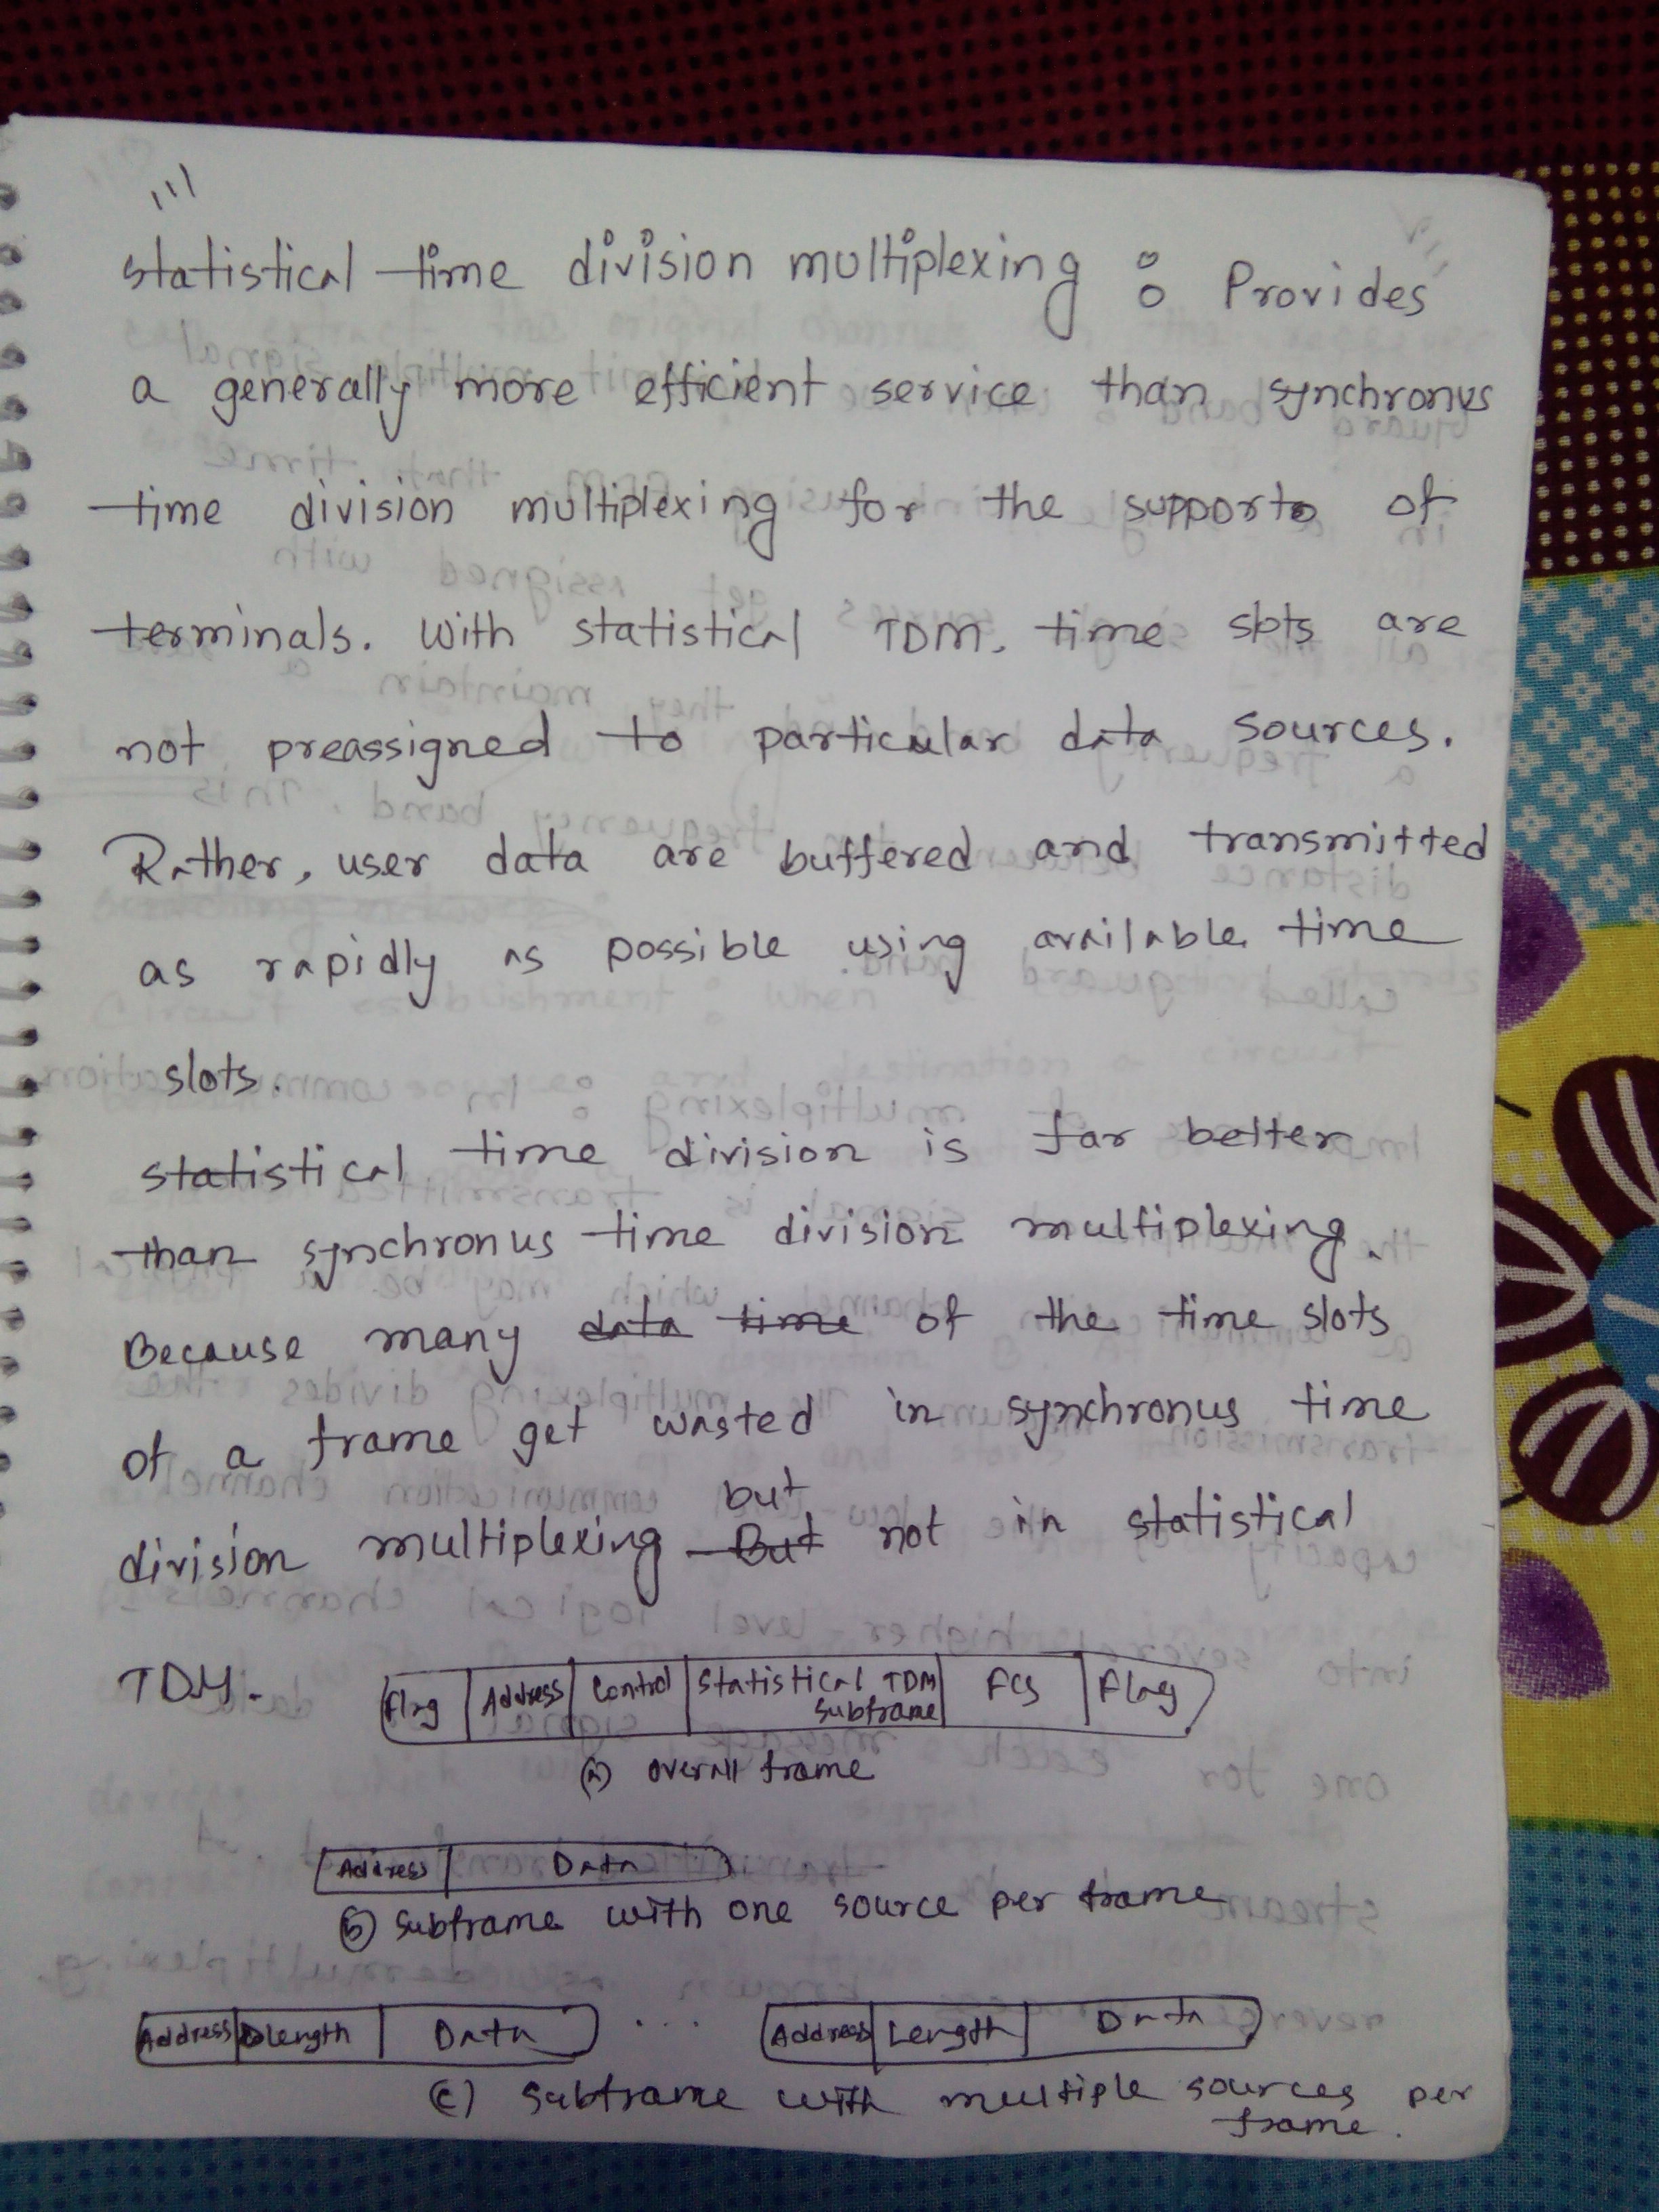 statistical time division multiplexing : Provides
a generally more efficient service than synchronus
time division multiplexing for the support of
terminals. With statistical TDM, time slots are
not preassigned to particular data sources.
Rather, user data are buffered and transmitted
as rapidly as possible using available time
slots.
statistical time division is far better
than synchronus time division multiplexing.
Because many data time of the time slots
of a frame get wasted in synchronus time
but
division multiplexing But not in statistical
TDM.
Flag Address Control Statistical TDM FCS Flag
Subframe
(a) overall frame
Address Data
(b) Subframe with one source per frame
Address Length Data ... Address Length Data
(c) Subframe with multiple sources per
frame.